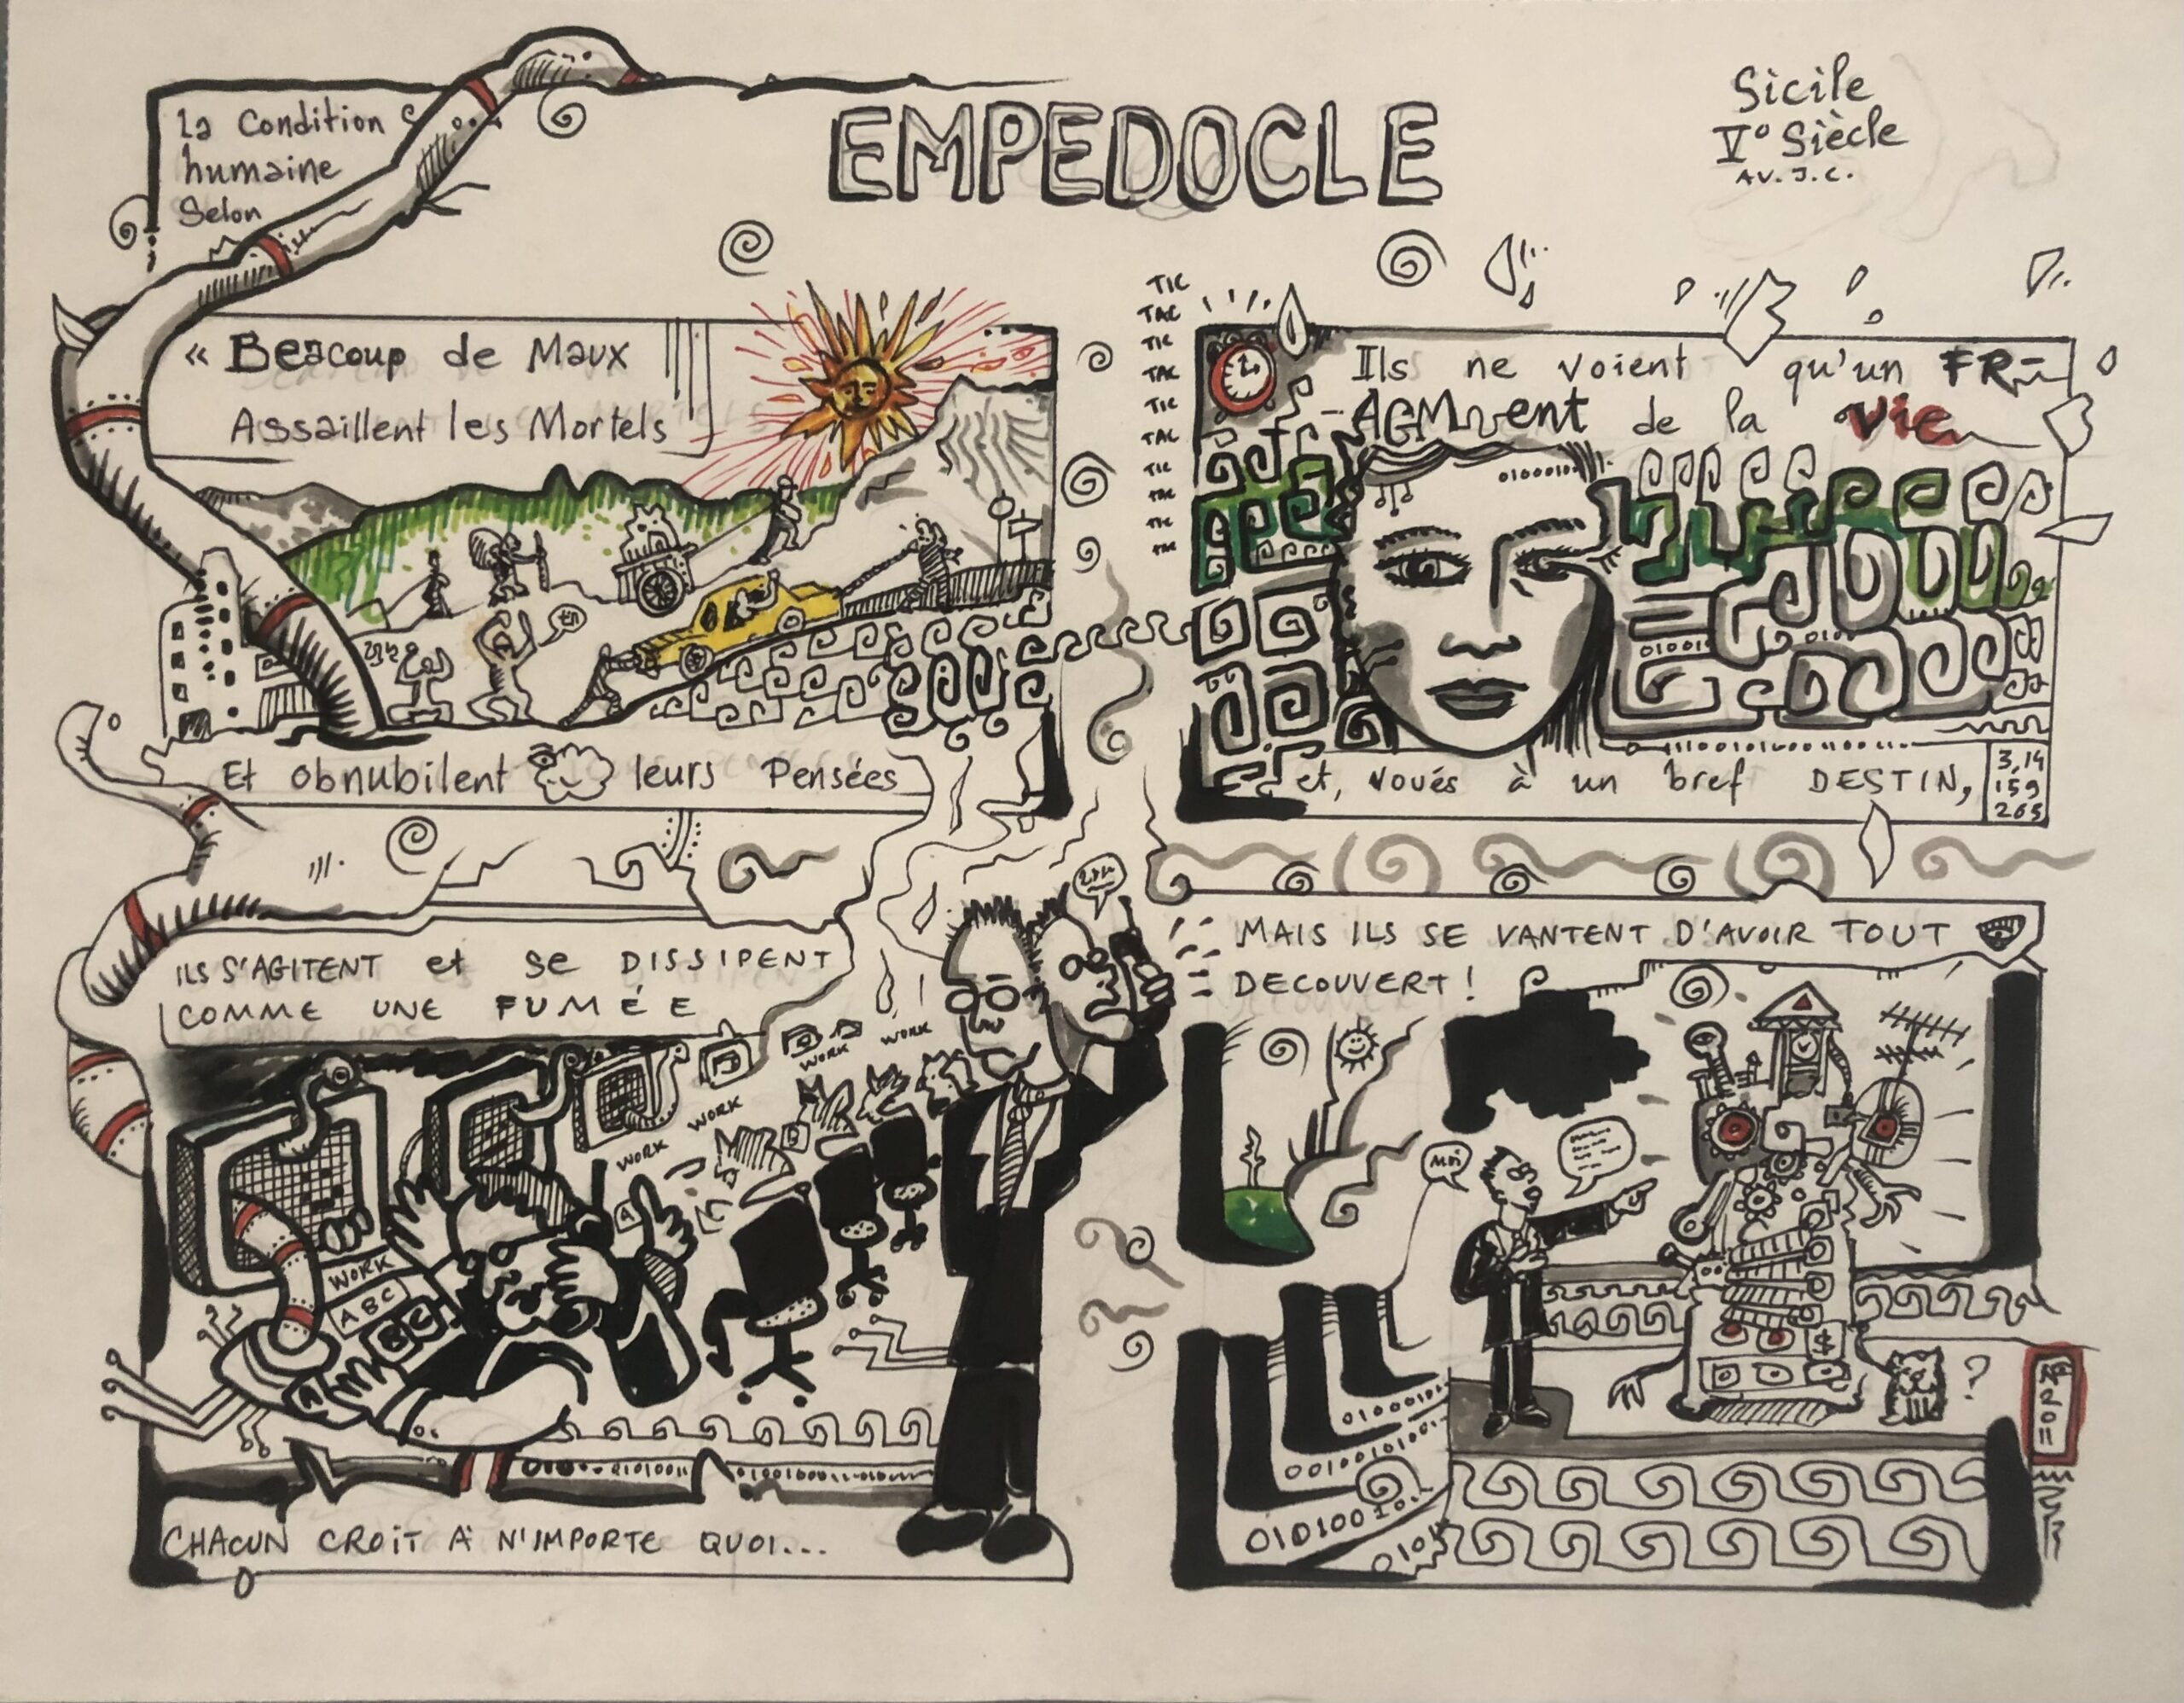 La Condition
humaine
Selon
EMPEDOCLE
Sicile
V° Siècle
AV. J.C.
« Beacoup de Maux
Assaillent les Mortels
Et obnubilent leurs Pensées
TIC
TAC
TIC
TAC
TIC
TAC
TIC
TAC
TIC
TAC
Ils ne voient qu'un FR-
-AGMent de la Vie
0100010
01001
010
et, voués à un bref DESTIN,
3,14
159
265
ILS S'AGITENT et se DISSIPENT
COMME UNE FUMÉE
WORK
WORK
WORK
WORK
WORK
ABC
BC
A
CHACUN CROIT A N'IMPORTE QUOI...
MAIS ILS SE VANTENT D'AVOIR TOUT
DECOUVERT !
MOI
$
?
2011